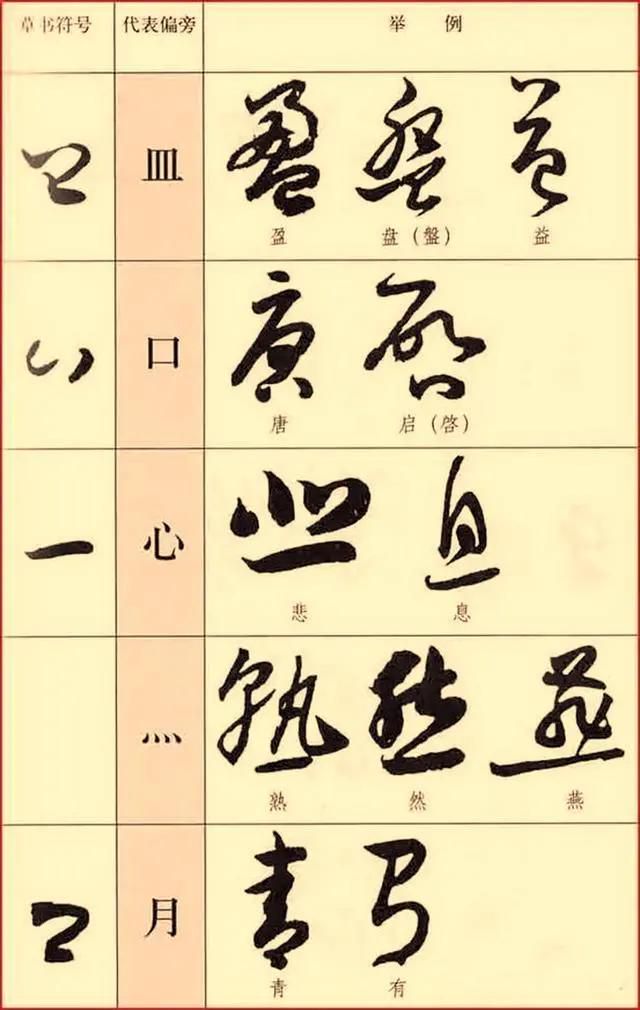 草书符号 代表偏旁 举例
皿
盈 盘（盤） 益
口
唐 启（啓）
心
悲 息
灬
熟 然 燕
月
青 有